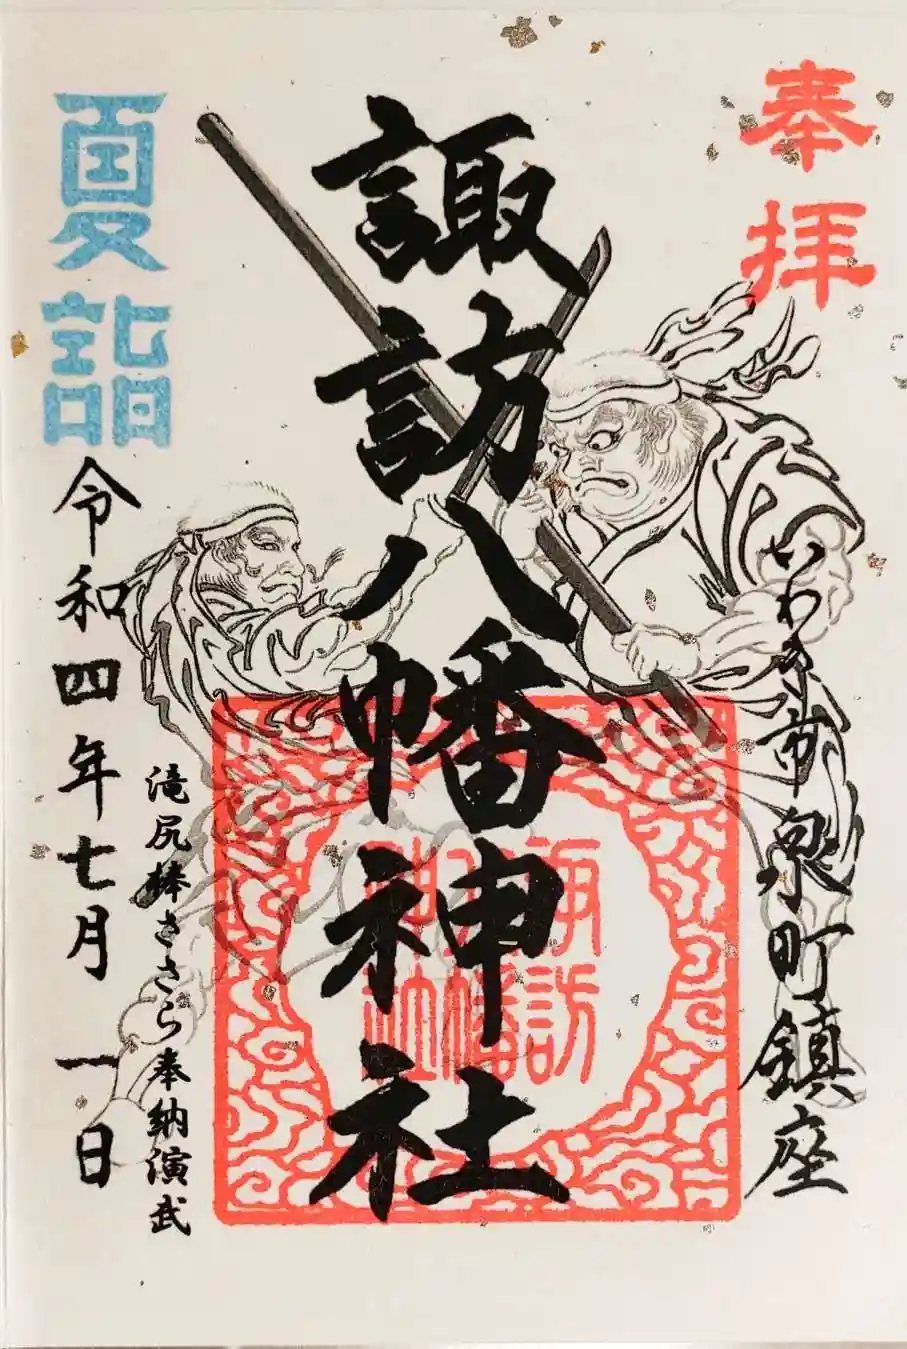 奉拝
いわき市泉町鎮座
諏訪八幡神社
諏訪
八幡
神社
滝尻棒ささら奉納演武
夏詣
令和四年七月一日